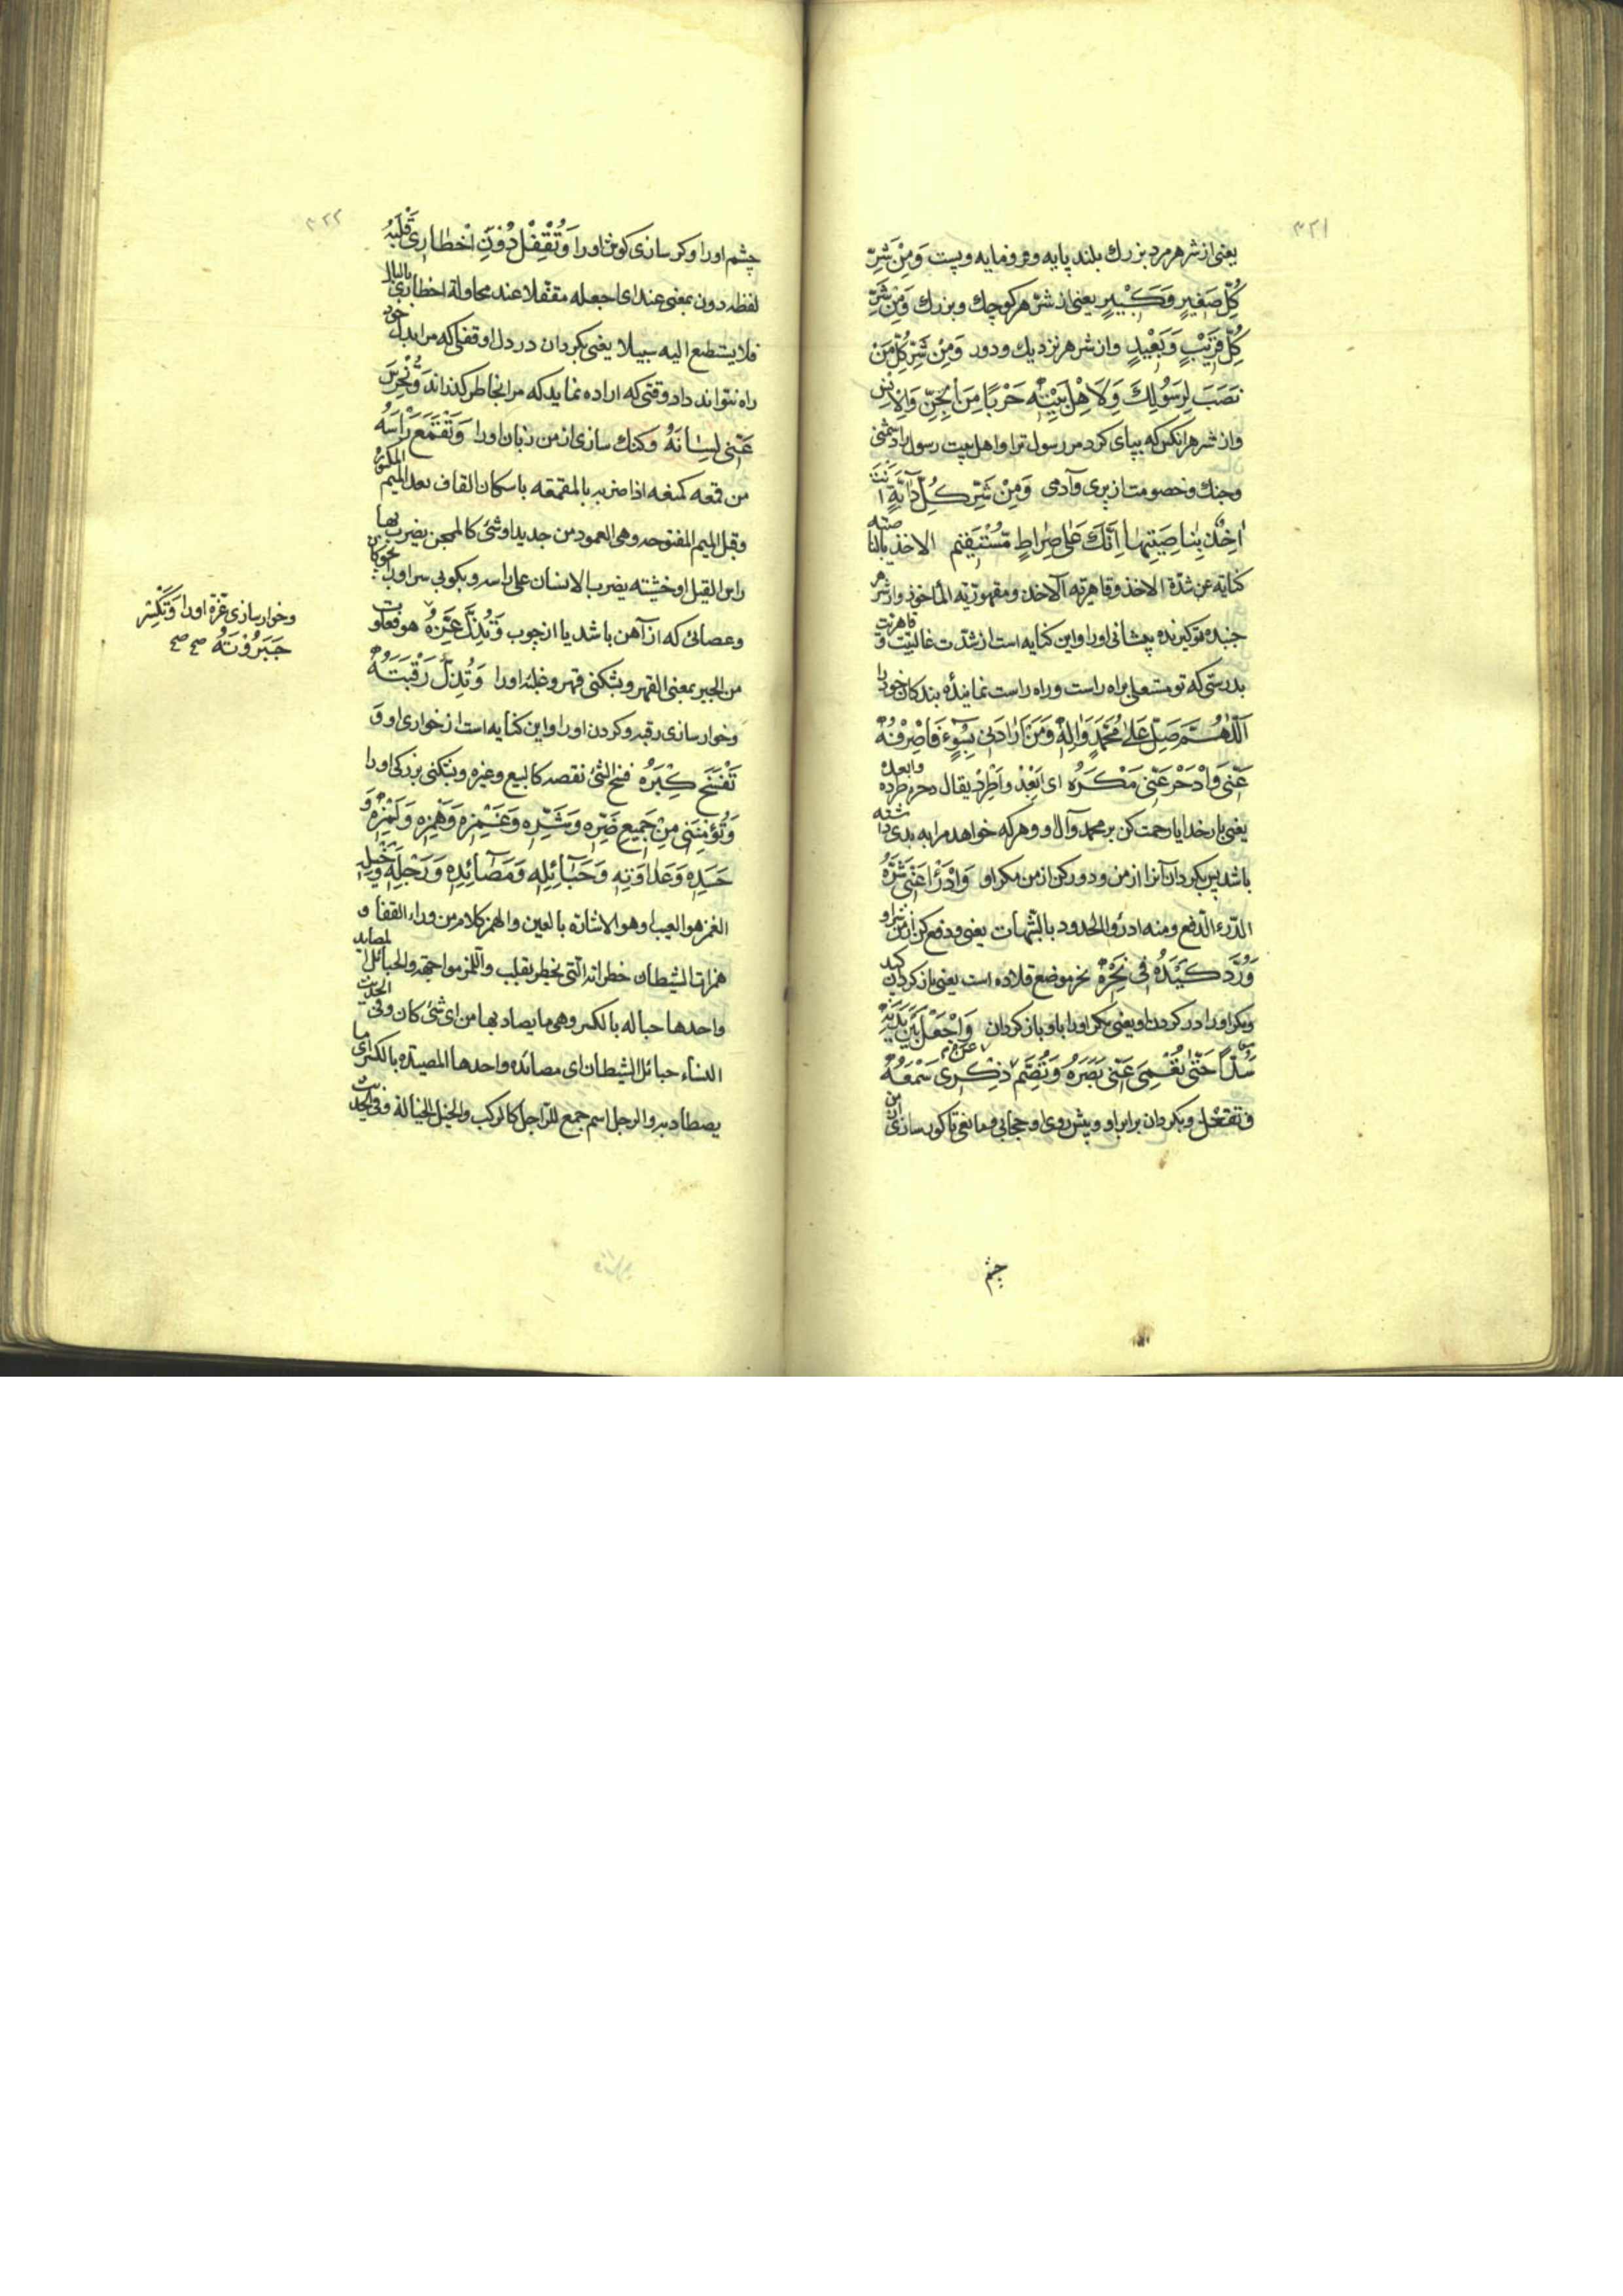 ۳۲۱
یعنی از شر هر مرد بزرك بلند پایه و فرومایه و پست وَمِنْ شَرِّ
كُلِّ صَغِيرٍ وَكَبِيرٍ یعنی از شر هر كوچك و بزرك وَمِنْ شَرِّ
كُلِّ قَرِيْبٍ وَبَعِيْدٍ و از شر هر نزدیك و دور وَمِنْ شَرِّ كُلِّ مَنْ
نَصَبَ لِرَسُولِكَ وَلِاَهْلِ بَيْتِهِ حَرْبًا مِنَ الْجِنِّ وَالْاِنْسِ
و از شر هر انكس كه بپای كرد مر رسول ترا و اهل بیت رسول را دشمنی
و جنك و خصومت از پری و آدمی وَمِنْ شَرِّ كُلِّ دَابَّةٍ اَنْتَ
اٰخِذٌ بِنَاصِيَتِهَا اِنَّكَ عَلٰى صِرَاطٍ مُسْتَقِيْمٍ الاخذ بالناصیه
كنایة عن شدة الاخذ و قاهریة الآخذ و مقهوریة المأخوذ و از شر هر
جنبده تو كیرنده پیشانی او را و این كنایه است از شدت غالبیت و قاهریت
بدرستی كه تو مستعلی براه راست و راه راست نماینده بندكان خود را
اَللّٰهُمَّ صَلِّ عَلٰى مُحَمَّدٍ وَاٰلِهِ وَمَنْ اَرَادَنِى بِسُوٓءٍ فَاصْرِفْهُ
عَنِّى وَادْحَرْ عَنِّى مَكْرَهُ اى اَبْعِدْ وَاطْرِدْ یقال دحره طرده وابعده
یعنی بار خدایا رحمت كن بر محمد و آل او و هر كه خواهد مرا به بدی داشته
باشد پس بكردان آنرا از من و دور كن از من مكر او وَادْرَأْ عَنِّى شَرَّهُ
الدّرء الدّفع ومنه ادرؤا الحدود بالشّبهات یعنی و دفع كن از من شر او
وَرُدَّ كَيْدَهُ فِى نَحْرِهِ نحر موضع قلاده است یعنی باز كردان كید
و مكر او را در كردن او یعنی مكر او را باو باز كردان وَاجْعَلْ بَيْنَ يَدَيْهِ
سُدًّا حَتّٰى تُعْمِىَ عَنِّى بَصَرَهُ وَتُصِمَّ عَنْ ذِكْرِى سَمْعَهُ
و بكردان برابر او و پیش روی او حجابی و مانعی تا كور سازی از من
چشم
۳۲۲
چشم او را و كر سازی كوش او را وَتُقْفِلَ دُوْنَ اِخْطَارِى قَلْبَهُ
لفظه دون بمعنی عند ای اجعله مقفلا عند محاولة اخطاری بالبال
فلا یستطیع الیه سبیلا یعنی بكردان در دل او قفلی كه مرا بدل خود
راه نتواند داد وقتی كه اراده نماید كه مرا بخاطر كذراند وَتُخْرِسَ
عَنِّى لِسَانَهُ و كنك سازی از من زبان او را وَتَقْمَعَ رَاْسَهُ
من قمعه كمنعه اذا ضربه بالمقمعه باسكان القاف بعد المیم المكسورة
وقبل المیم المفتوحه وهی العمود من حدید او شئ كالمحجن یضرب بها
راس الفیل او خشبة یضرب بها الانسان علی راسه و بكوبی سر او را
و عصائی كه از آهن باشد یا از چوب وَتُذِلَّ عِزَّهُ هو فعلوت
من الجبر بمعنی القهر و بشكنی قهر و غلبه او را وَتُذِلَّ رَقَبَتَهُ
و خوار سازی رقبه و كردن او را و این كنایه است از خواری او وَ
تَفْسَخَ كِبْرَهُ فسخ الشئ نقضه كالبیع وغیره و بشكنی بزركی او را
وَتُؤْمِنَنِى مِنْ جَمِيعِ ضَرِّهِ وَشَرِّهِ وَغَمْزِهِ وَهَمْزِهِ وَلَمْزِهِ وَ
حَسَدِهِ وَعَدَاوَتِهِ وَحَبَائِلِهِ وَمَصَائِدِهِ وَرَجْلِهِ وَخَيْلِهِ
الغمز هو العیب او هو الاشارة بالعین والهمز كلام من وراء القفا و
همزات الشیطان خطراته التی یخطر بقلب واللمز مواجهة والحبائل المصاید
واحدها حباله بالكسر وهی ما یصاد بها من ای شئ كان وفی الحدیث
النساء حبائل الشیطان ای مصائده واحدها المصیدة بالكسر ای ما
یصطاد به والرجل اسم جمع للرّاجل كالركب والخیل الخیالة وفی الحدیث
و خوار سازی عزّه او را وَتَكْسِرَ
جَبَرُوْتَهُ صح صح